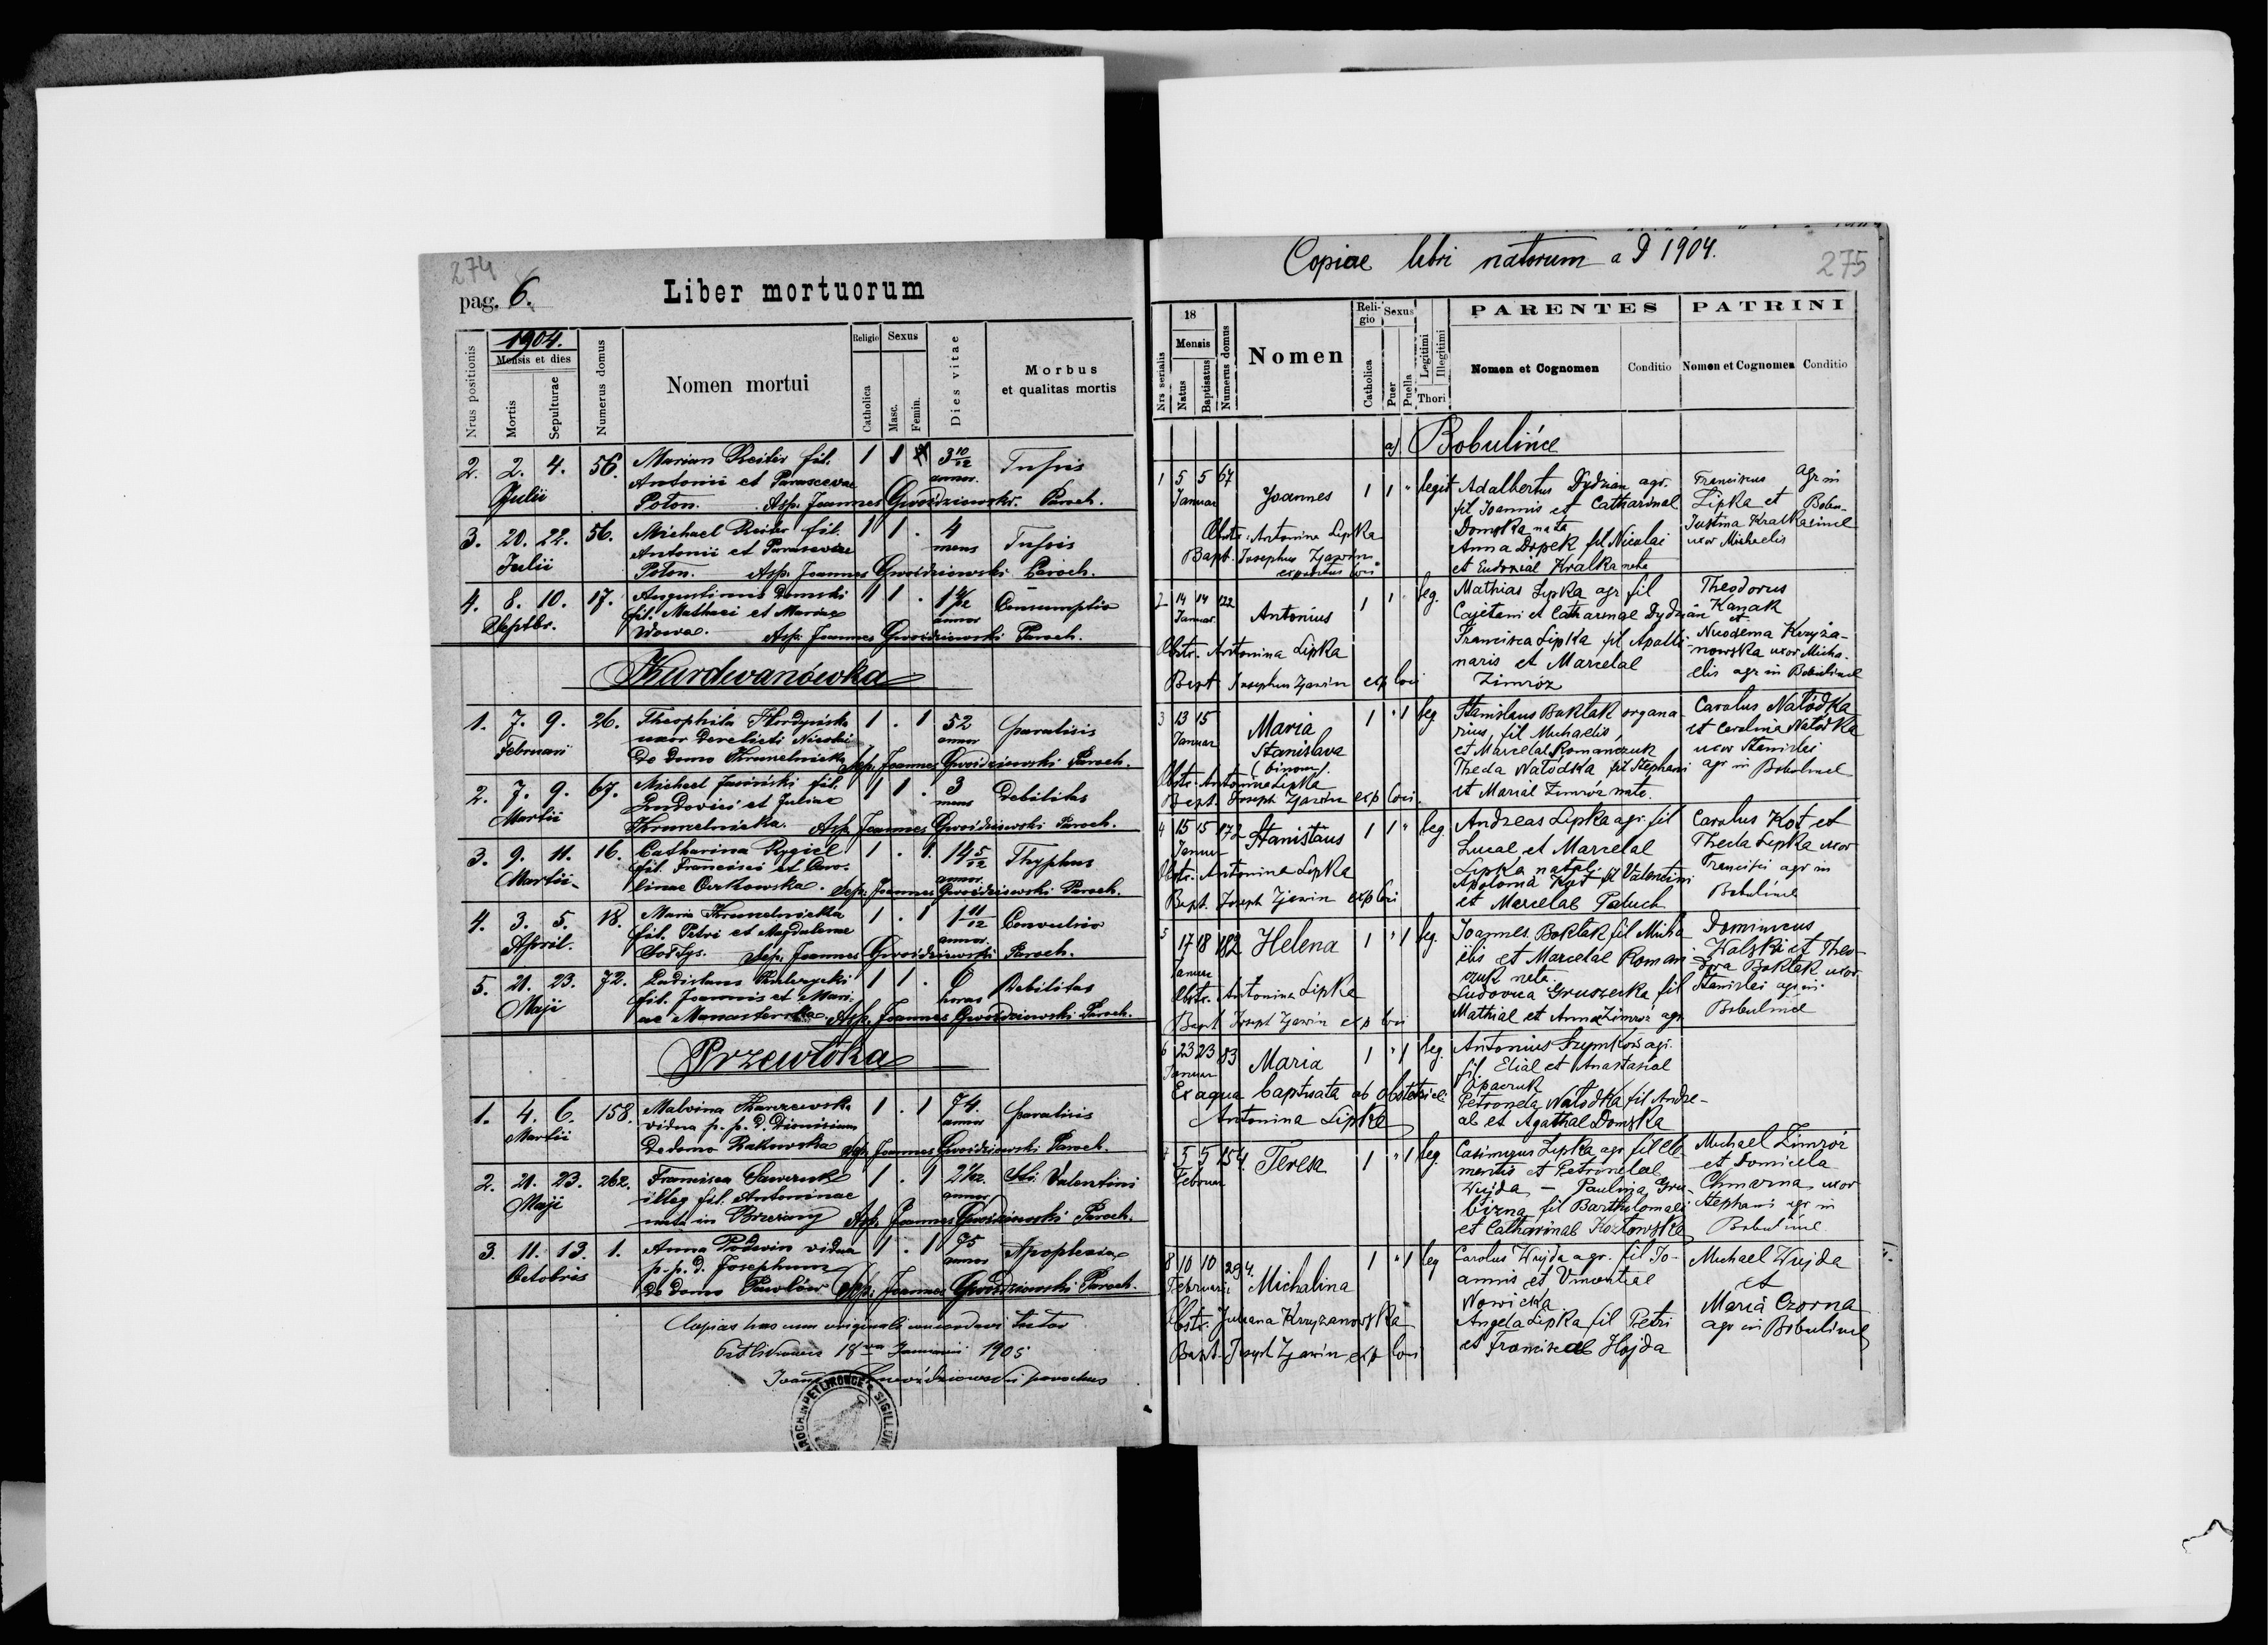 274
pag. 6.
Liber mortuorum
Nrus positionis
1904.
Mensis et dies
Mortis
Sepulturae
Numerus domus
Nomen mortui
Religio
Catholica
Sexus
Masc.
Femin.
Dies vitae
Morbus
et qualitas mortis
2. 2. 4. 56. Marian Reiter fil. 1 1 3 10/12 Tussis
Julii Antonii et Parascevae annor.
Poton. Asp. Joannes Gwoździowski Paroch.
3. 20. 22. 56. Michael Reiter fil. 1 1 . 4 Tussis
Julii Antonii et Parascevae mens
Poton. Asp. Joannes Gwoździowski Paroch.
4. 8. 10. 17. Augustinus Domski 1 1 . Consumptio
Septbr. fil. Mathaei et Mariae annor
Wowa. Asp. Joannes Gwoździowski Paroch.
Kurdwanówka
1. 7. 9. 26. Theophila 1 . 1 52 paralisis
Februari uxor derelicti annor
de domo Chmielnicka Asp. Joannes Gwoździowski Paroch.
2. 7. 9. 67. Michael Jasiński fil. 1 1 . 3 Debilitas
Martii Ludovici et Juliae mens
Asp. Joannes Gwoździowski Paroch.
3. 9. 11. 16. Catharina Rygiel 1 . 1. 14 5/12 Thyphus
Martii fil. Francisci et Caro- annor
linae Asp. Joannes Gwoździowski Paroch.
4. 3. 5. 18. Maria 1 . 1 1 11/12 Convulsio
April. fil. Petri et Magdalenae annor.
Asp. Joannes Gwoździowski Paroch.
5. 21. 23. 72. Ladislaus 1 1 . 6 Debilitas
Maji fil. Joannis et Mari- horas
ae Asp. Joannes Gwoździowski Paroch.
Przewłoka
1. 4. 6. 158. Malvina 1 . 1 74. paralisis
Martii vidua p. p. d. Dionisium annor
de domo Rakowska Asp. Joannes Gwoździowski Paroch.
2. 21. 23. 262. Francisca 1 . 1 Sti. Valentini
Maji illeg fil. Antoninae annor
nata in Brzeżany Asp. Joannes Gwoździowski Paroch.
3. 11. 13. 1. Anna Podwin vidua 1 . 1 75 Apoplexia
Octobris p. p. d. Josephum annor
de domo Pawłów Asp. Joannes Gwoździowski Paroch.
Copias has cum originali concordari testor
18 Januarii 1905
Joannes Gwoździowski parochus
PAROCH. IN PETLIKOWCE SIGILLUM
Copiae libri natorum a D 1904.
275
Nrs serialis
18
Mensis
Natus
Baptisatus
Numerus domus
Nomen
Reli-
gio
Catholica
Sexus
Puer
Puella
Legitimi
Illegitimi
Thori
PARENTES
Nomen et Cognomen
Conditio
PATRINI
Nomen et Cognomen
Conditio
a) Bobulińce
1 5 5 67 Joannes 1 1 " legit Adalbertus Dydzian agr. Franciscus agr in
Januar fil Joannis et Catharinae Lipka et Bobu-
Domska nata Justina Kralka lince
Obstr. Antonina Lipka Anna Dopek fil Nicolai uxor Michaelis
Bapt. Josephus Zjawin et Eudoxiae Kralka nata
expositus loci
2 14 14 122 Antonius 1 1 leg. Mathias Lipka agr fil Theodorus
Januar Cajetani et Catharinae Dydzian Kanak et
Obstr. Antonina Lipka Francisca Lipka fil Apolli- Nicodema Krzyża-
naris et Marcelae nowska uxor Micha-
Bapt Josephus Zjawin exp loci Zimróz elis agr in Bobulince
3 13 15 Maria 1 " 1 leg Stanislaus Boktak organa- Carolus Natodka
Januar Stanislava rius, fil Michaelis, et Carolina Natodka
(binom). et Marcelae Romanczuk uxor Stanislai
Obstr. Antonina Lipka Thecla Natódka fil Stephani agr in Bobulince
Bapt. Joseph Zjawin exp loci. et Mariae Zimróz nata.
4 15 15 172 Stanislaus 1 1 " leg Andreas Lipka agr. fil Carolus Kot et
Januar Lucae et Marcelae Thecla Lipka uxor
Obstr. Antonina Lipka Apolonia Kot fil Valentini Francisci agr in
Bapt. Joseph Zjawin exp loci et Marcelae Paluch Bobulince
5 17 18 182 Helena 1 " 1 leg. Joannes Boktak fil Micha- Dominicus
Januar elis et Marcelae Roman- Walski et Theo-
czuk nata dora Boktak uxor
Obstr. Antonina Lipka Ludovica Gruszecka fil Stanislai agr in
Bapt Joseph Zjawin exp loci Mathiae et Annae Zimróz agr Bobulince
6 23 23 83 Maria 1 " 1 leg. Antonius Szymków agr.
Januar fil. Eliae et Anastasiae
Ex aqua baptisata ab obstetrici Opaczuk
Antonina Lipka Petronela Natodka fil Andre-
ae et Agathae Domska
7 5 5 154. Teresa 1 " 1 leg. Casimirus Lipka agr fil Cle- Michael Zimróz
Februar mentis et Petronelae et Domicela
Wujda - Paulina Gru- Chmarna uxor
bizna fil Bartholomaei Stephani agr in
et Catharinae Kozłowska Bobulince
8 10 10 294. Michalina 1 " 1 leg Carolus Wujda agr. fil Jo- Michael Wujda
Februarii annis et Vincentiae et
Nowicka Maria Czorna
Obstr. Juliana Krzyżanowska Angela Lipka fil Petri agr in Bobulince
Bapt. Joseph Zjawin exp loci et Franciscae Hojda